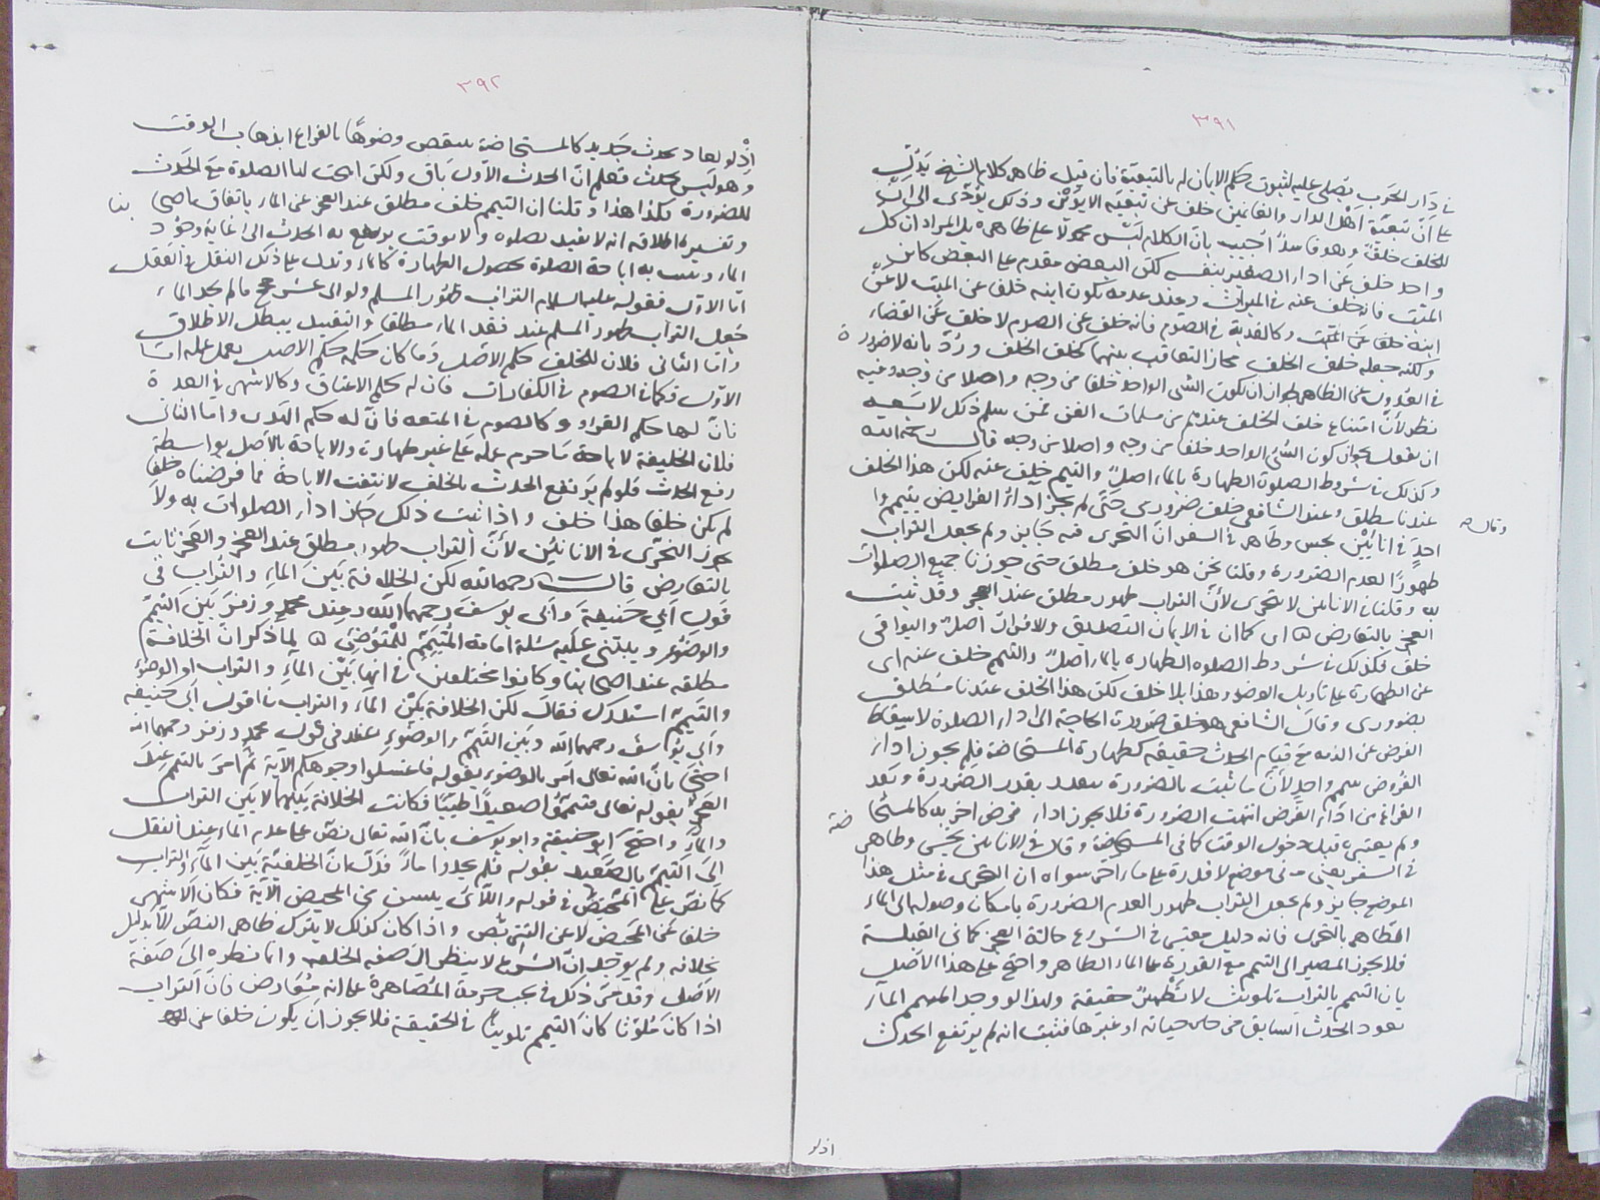 ٣٩١
في دار الحرب يصلى عليه لثبوت حكم الايمان له بالتبعية فان قيل ظاهر كلام الشيخ يدل
على ان تبعية اهل الدار والغانمين خلف عن تبعية الابوين وذلك يؤدى الى ان
للخلف خلفا وهو فاسد اجيب بان الكلام ليس محمولا على ظاهره بل المراد ان كل
واحد خلف عن اداء الصغير بنفسه لكن البعض مقدم على البعض كابن
الميت فانه خلف عنه في الميراث وعند عدمه يكون ابنه خلفا عن الميت لا عن
ابنه خلفا عن الميت وكالفدية في الصوم فانه خلف عن الصوم لا خلف عن القضاء
ولكنه جعله خلف الخلف مجاز التعاقب بينهما كخلف الخلف ورد بانه لا ضرورة
في العدول عن الظاهر لجواز ان يكون الشى الواحد خلفا من وجه واصلا من وجه وفيه
نظر لان امتناع خلف الخلف عندهم من مسلمات الفن فمن يسلم ذلك لا يسعه
ان يقول بجواز كون الشى الواحد خلفا من وجه واصلا من وجه قال رحمه الله
وكذلك في شروط الصلوة الطهارة بالماء اصل والتيمم خلف عنه لكن هذا الخلف
عندنا مطلق وعند الشافعى خلف ضرورى حتى لم يجز اداء الفرايض بتيمم وا
وقال
احد في انائين نجس وطاهر في السفر ان التحرى فيه جايز ولم يجعل التراب
طهورا لعدم الضرورة وقلنا نحن هو خلف مطلق حتى جوزنا جميع الصلوات
به وقلنا في الانائين لا يتحرى لان التراب طهور مطلق عند العجز وقد ثبت
العجز بالتعارض ه اى كما ان في الايمان التصديق والاقرار اصل والبواقى
خلف فكذلك في شروط الصلوه الطهاره بالماء اصل والتيمم خلف عنه اى
عن الطهارة على تاويل الوضوء وهذا بلا خلف لكن هذا الخلف عندنا مطلق
بضرورى وقال الشافعى هو خلف ضرورة الحاجة الى اداء الصلوة لاسقاط
الفرض عن الذمه مع قيام الحدث حقيقة كطهارة المستحاضة فلم يجوز اداء
الفروض بتيمم واحد لان ما ثبت بالضرورة يتعدد بقدر الضرورة وبعد
الفراغ من اداء الفرض انتهت الضرورة فلا يجوز اداء فرض اخر به كالمستحا ضة
ولم يعتبره قبل دخول الوقت كما في المستحاضة وقال في الانائين نجس وطاهر
في السفر يعنى في موضع لا قدرة على ماء اخر سواه ان التحرى في مثل هذا
الموضع جايز ولم يجعل التراب طهورا لعدم الضرورة بامكان وصوله الى الماء
الطاهر بالتحرى فانه دليل معتبر في الشرع حالة العجز كما في القبلة
فلا يجوز المصير الى التيمم مع القدرة على الماء الطاهر واحتج على هذا الاصل
بان التيمم بالتراب تلويث لا تطهير حقيقة ولهذا لو وجد المتيمم الماء
يعود الحدث السابق من جنابة او غيرها فثبت انه لم يرتفع الحدث
اذ لو
٣٩٢
اذ لو يعاد بحدث جديد كالمستحاضة ينتقص وضوها بالفراغ او بذهاب الوقت
وهو ليس بحدث فعلم ان الحدث الاول باق ولكن ابيحت لها الصلوة مع الحدث
للضرورة فكذا هذا وقلنا ان التيمم خلف مطلق عند العجز عن الماء باتفاق اصحا بنا
وتفسير اطلاقه انه لا يقيد بصلوه ولا بوقت يرتفع به الحدث الى غاية وجود
الماء ويثبت به اباحة الصلوة بحصول الطهارة كالماء وتدل على ذلك النقل والعقل
اما الاول فقوله عليه السلام التراب طهور المسلم ولو الى عشر حجج ما لم يجد الماء
جعل التراب طهور المسلم عند فقد الماء مطلقا والتقييد يبطل الاطلاق
واما الثانى فلان للخلف حكم الاصل وما كان حكمه حكم الاصل يعمل عمله اما
الاول فكما في الصوم في الكفارات فان له حكم الاعتاق وكالاشهر في العدة
فان لها حكم القروء وكالصوم في المتعة فان له حكم الهدى واما الثانى
فلان الخليفة لاباحة ما حرم عله على غير طهارت والاباحة بالاصل بواسطة
رفع الحدث فلو لم يرتفع الحدث بالخلف لانتفت الاباحة فما فرضناه خلفا
لم يكن خلفا هذا خلف واذا ثبت ذلك جاز اداء الصلوات به ولا
يجوز التحرى في الانائين لان التراب طهور مطلق عند العجز والعجز ثابت
بالتعارض قال رحمه الله لكن الخلافة بين الماء والتراب في
قول ابي حنيفة وابى يوسف رحمهما الله وعند محمد وزفر بين التيمم
والوضوء ويبتنى عليه مسئلة امامة المتيمم للمتوضى ه لما ذكر ان الخلافة
مطلقه عند اصحابنا وكانوا مختلفين في انها بين الماء والتراب او الوضوء
والتيمم استدرك فقال لكن الخلافة بين الماء والتراب في قول ابى حنيفة
وابى يوسف رحمهما الله وبين التيمم والوضوء عند في قول محمد وزفر رحمهما الله
احتجا بان الله تعالى امر بالوضوء بقوله فاغسلوا وجوهكم الآية ثم امر بالتيمم عند
العجز بقوله تعالى فتيمموا صعيدا طيبا فكانت الخلافة بينهما لا بين التراب
والماء واحتج ابو حنيفة وابو يوسف بان الله تعالى نص على عدم الماء عند النقل
الى التيمم بالصعيد بقوله فلم يجدوا ماء فدل ان الخلفية بين الماء والتراب
كما نص على المحيض في قوله واللآئى يئسن من المحيض الآية فكان الاشهر
خلفا عن المحيض لا عن التربص واذا كان كذلك لا يترك ظاهر النص الا بدليل
بخلافه ولم يوجد ان الشرع لا ينظر الى صفه الخلف وانما نظره الى صفة
الاصل وقد مر ذلك في بحث حرمة المصاهرة على انه معارض فان التراب
اذا كان ملوثا كان التيمم تلويثا في الحقيقة فلا يجوز ان يكون خلفا عن